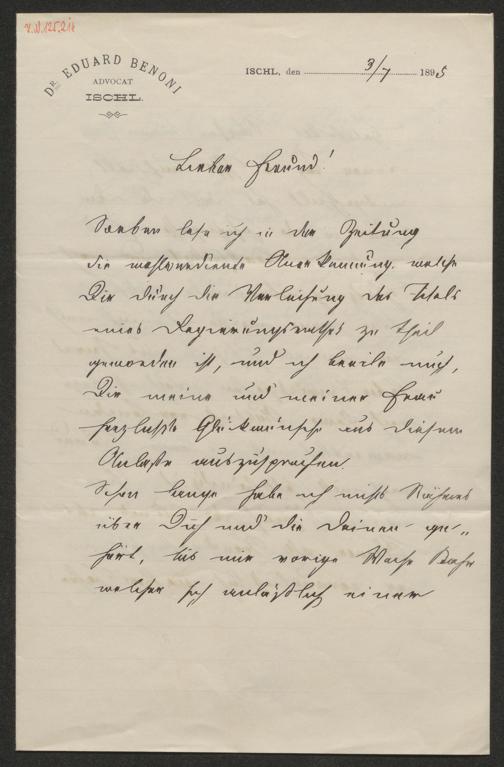 DR. EDUARD BENONI
ADVOCAT
ISCHL.
ISCHL, den 3/7 1895
Lieber Freund!
Soeben lese ich in der Zeitung
die wohlverdiente Anerkennung, welche
Dir durch die Verleihung des Titels
eines Regierungsrathes zu Theil
geworden ist, und ich beeile mich,
Dir meine und meiner Frau
herzlichste Glückwünsche aus diesem
Anlasse auszusprechen.
Schon lange habe ich nichts Näheres
über Dich und die Deinen ge-
hört, bis mir vorige Woche
welcher sich anläßlich einer